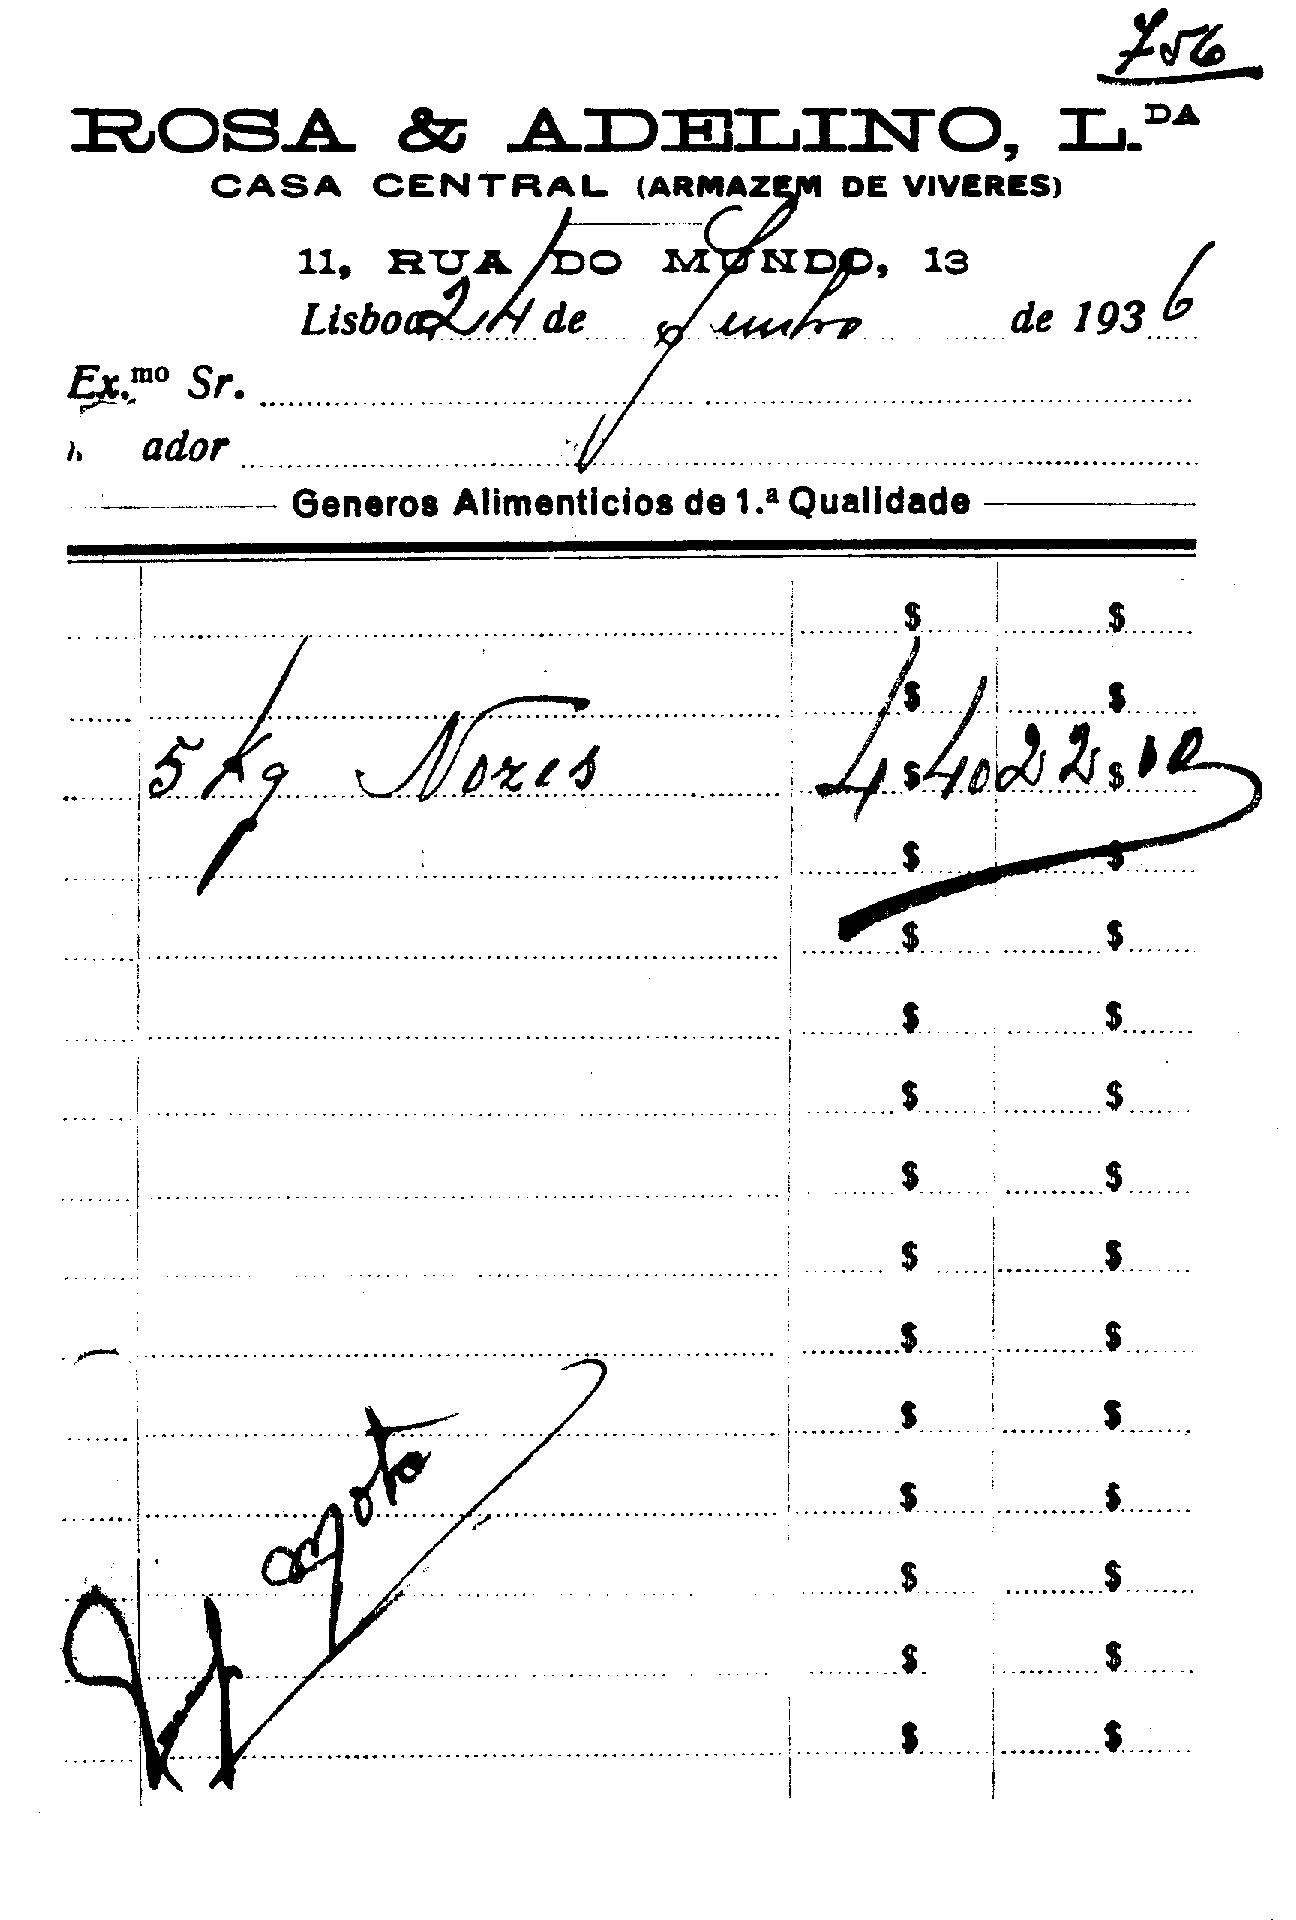 756
ROSA & ADELINO, L.DA
CASA CENTRAL (ARMAZEM DE VIVERES)
11, RUA DO MUNDO, 13
Lisboa, 24 de Junho de 1936
Ex.mo Sr.
ador
Generos Alimenticios de 1.ª Qualidade
$ $
$ $
5 Kg Nozes 4$40 22$00
$ $
$ $
$ $
$ $
$ $
$ $
$ $
$ $
$ $
$ $
$ $
$ $